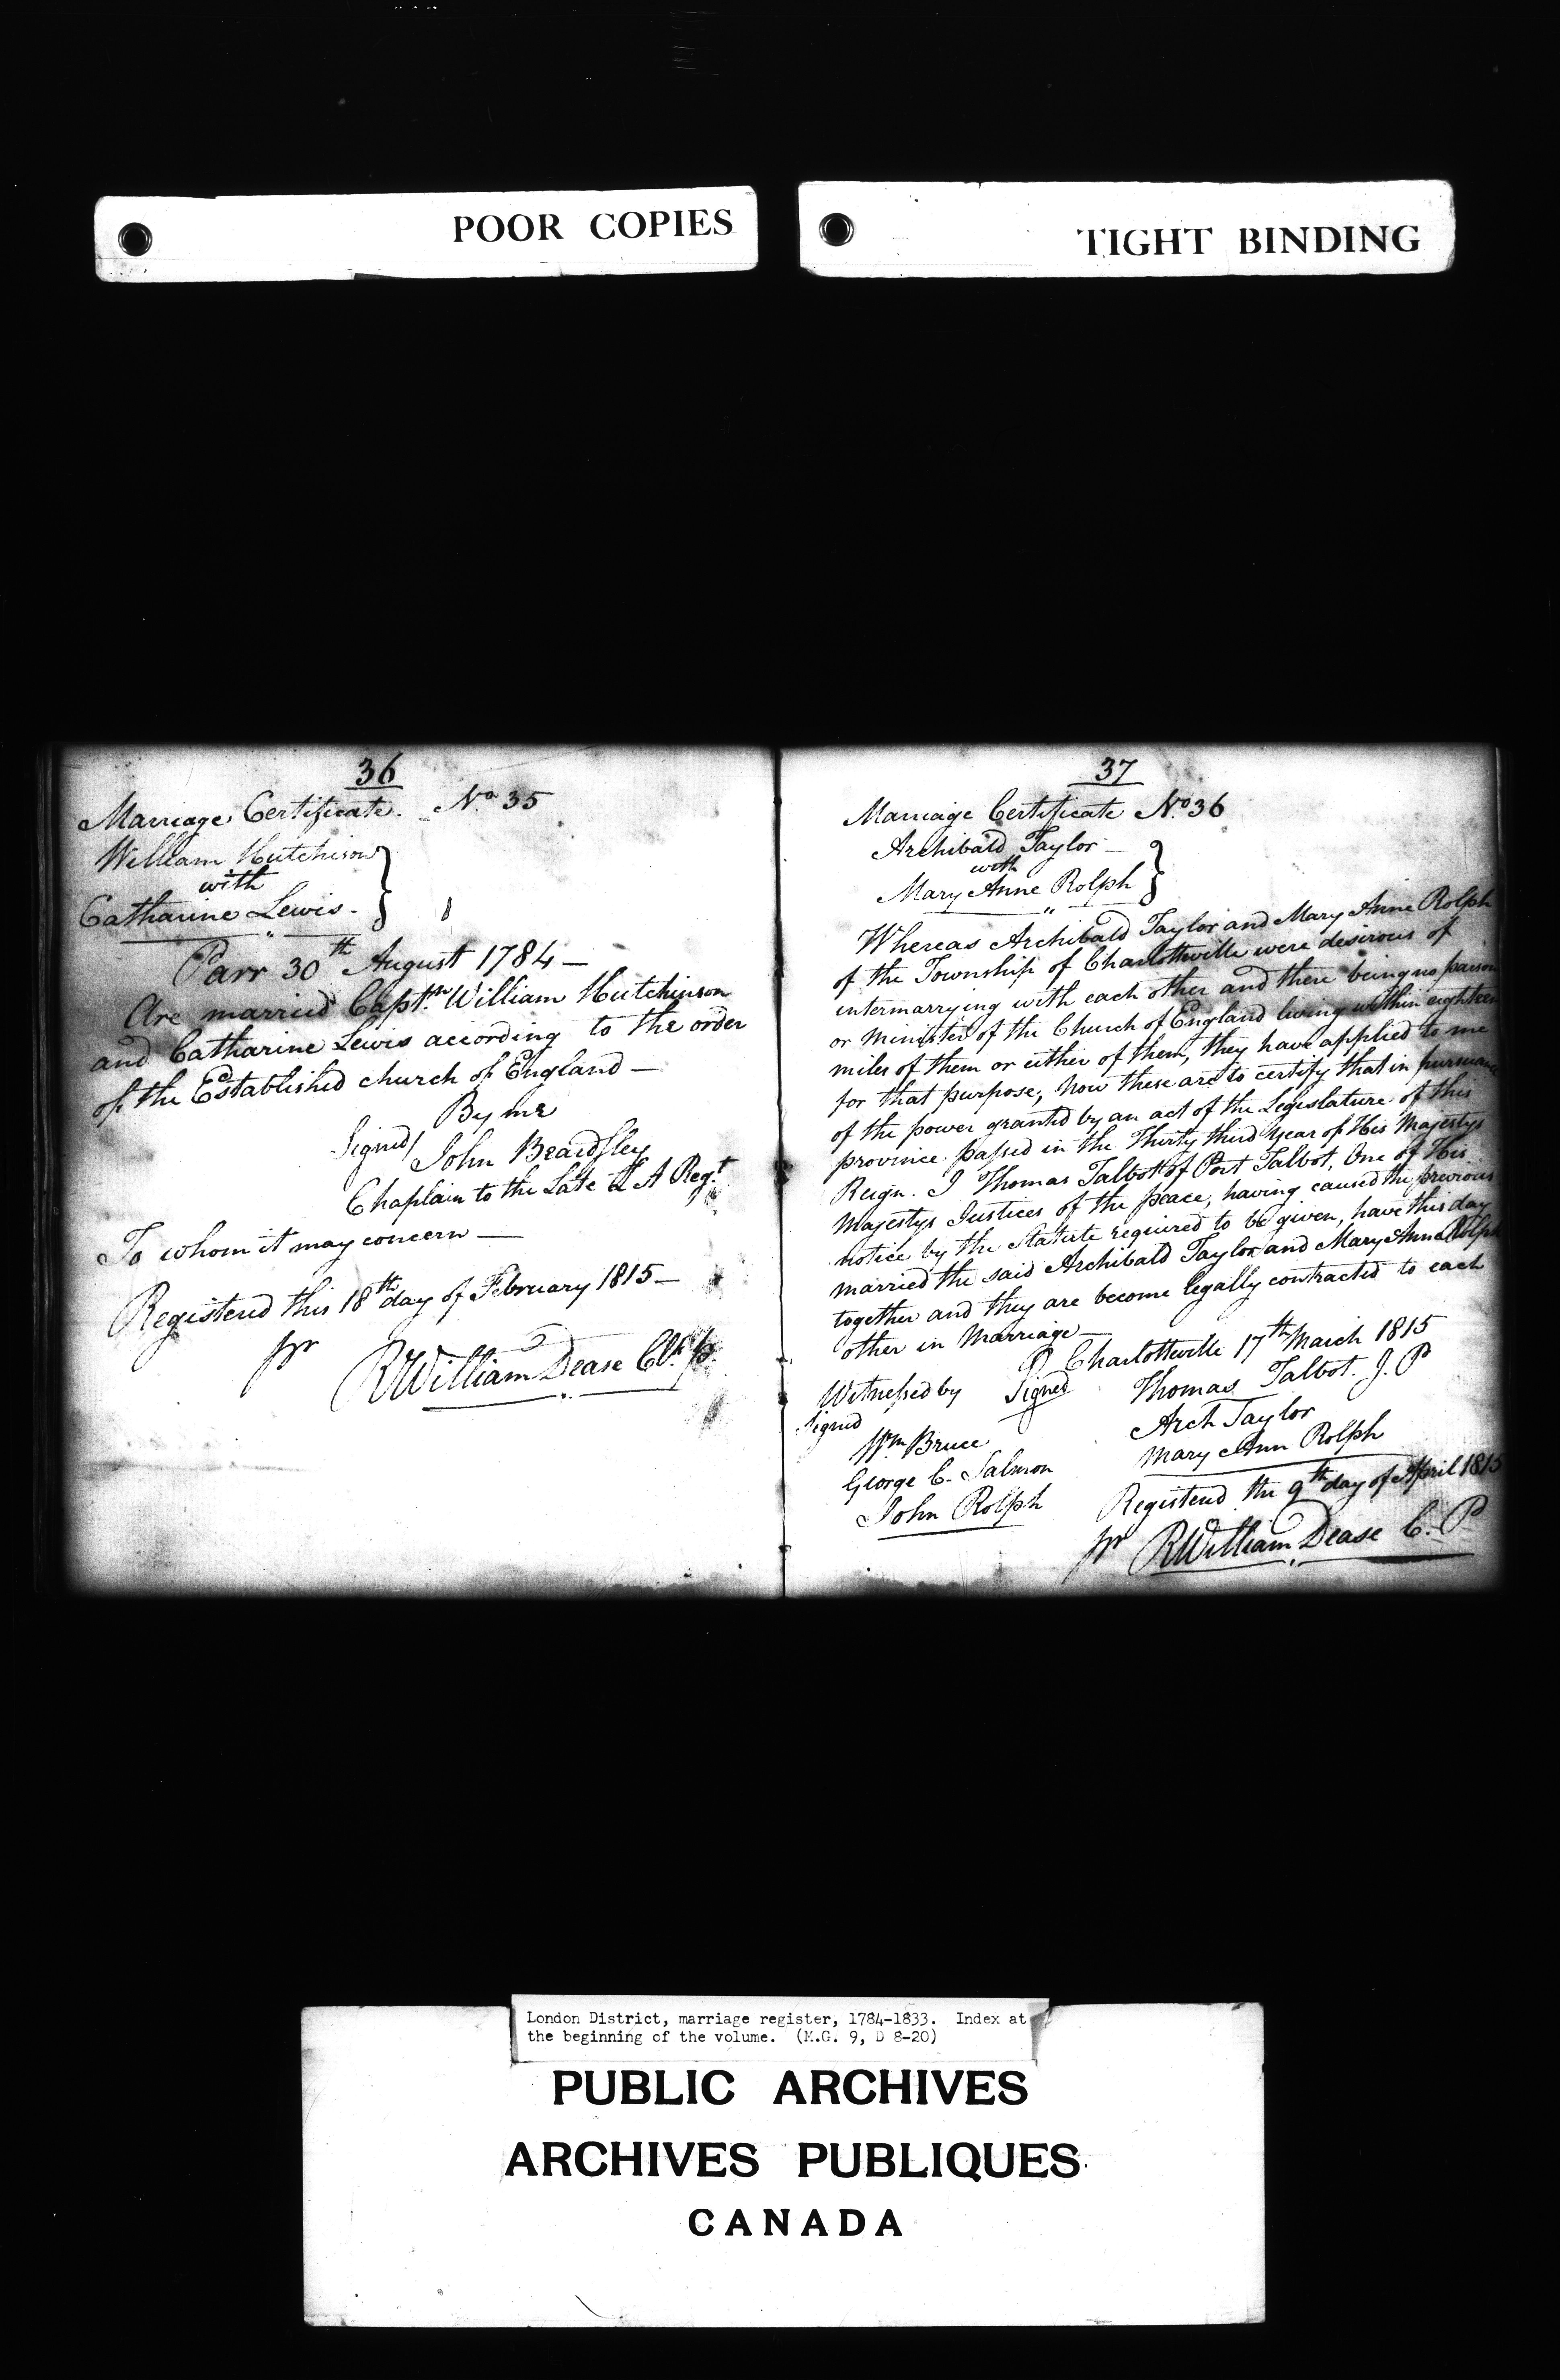 POOR COPIES
TIGHT BINDING
36
Marriage Certificate. No 35
William Hutchison
with
Catharine Lewis.
Parr 30th August 1784 —
Are married Captn. William Hutchinson
and Catharine Lewis according to the order
of the Established church of England —
By me
Signed/ John Beardsley
Chaplain to the Late L A Regt
To whom it may concern —
Registered this 18th day of February 1815 —
pr
RWilliam Dease Clk p.
37
Marriage Certificate No 36
Archibald Taylor —
with
Mary Anne Rolph
Whereas Archibald Taylor and Mary Anne Rolph
of the Township of Charlotteville were desirous of
intermarrying with each other and there being no parson
or Minister of the Church of England living within eighteen
miles of them or either of them, they have applied to me
for that purpose, Now these are to certify that in pursuance
of the power granted by an act of the Legislature of this
province passed in the Thirty third Year of His Majestys
Reign. I Thomas Talbot of Port Talbot, One of His
Majestys Justices of the peace, having caused the previous
notice by the Statute required to be given, have this day
married the said Archibald Taylor and Mary Anne Rolph
together and they are become legally contracted to each
other in Marriage —
Charlotteville 17th March 1815
Witnessed by Signed Thomas Talbot. J. P
Signed
Arch Taylor
Wm Bruce
Mary Ann Rolph
George C. Salmon
John Rolph
Registered the 9th day of April 1815
pr RWilliam Dease C. P
London District, marriage register, 1784-1833. Index at
the beginning of the volume. (M.G. 9, D 8-20)
PUBLIC ARCHIVES
ARCHIVES PUBLIQUES
CANADA